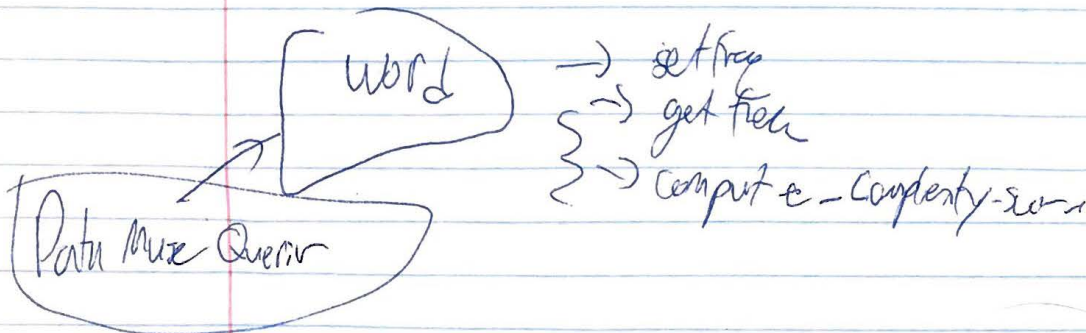 Word
→ setfreq
→ getfreq
→ compute_complexity-score
Data Muse Querier